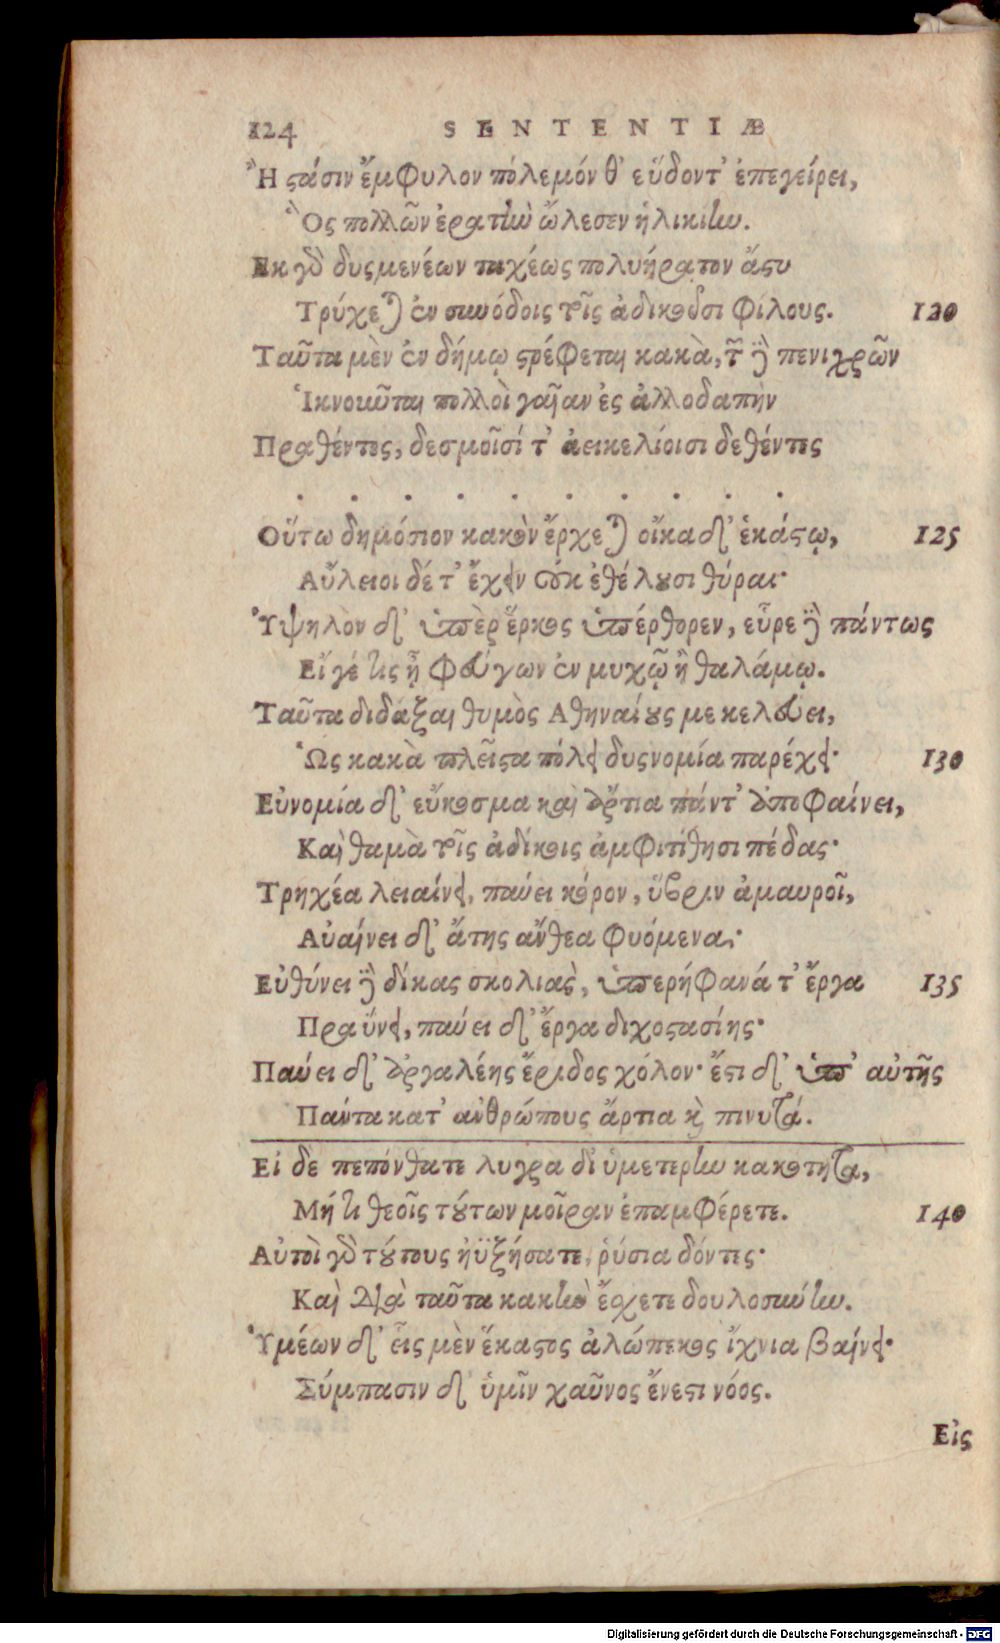 124 SENTENTIÆ
Ἢ στάσιν ἔμφυλον πόλεμόν θ᾽ εὕδοντ᾽ ἐπεγείρει,
Ὃς πολλῶν ἐρατὴν ὤλεσεν ἡλικίην.
Εκ γὸ δυςμενέων ταχέως πολυήρατον ἄστυ
Τρύχεται ἐν συνόδοις τοῖς ἀδικοῦσι φίλους. 120
Ταῦτα μὲν ἐν δήμῳ στρέφεται κακὰ, τῶν δὲ πενιχρῶν
Ἱκνοιῶται πολλοὶ γαῖαν ἐς ἀλλοδαπὴν
Πραθέντες, δεσμοῖσί τ᾽ ἀεικελίοισι δεθέντες
. . . . . . . . . .
Οὕτω δημόσιον κακὸν ἔρχεται οἴκαδ᾽ ἑκάστῳ, 125
Αὔλειοι δέ τ᾽ ἔχειν οὐκ ἐθέλουσι θύραι·
Ὑψηλὸν δ᾽ ὑπὲρ ἕρκος ὑπέρθορεν, εὗρε δὲ πάντως
Εἴ γέ τις ᾖ φεύγων ἐν μυχῷ ἢ θαλάμῳ.
Ταῦτα διδάξαι θυμὸς Αθηναίους με κελεύει,
Ὡς κακὰ πλεῖστα πόλει δυςνομία παρέχει· 130
Εὐνομία δ᾽ εὔκοσμα καὶ ἄρτια πάντ᾽ ἀποφαίνει,
Καὶ θαμὰ τοῖς ἀδίκοις ἀμφιτίθησι πέδας·
Τρηχέα λειαίνει, παύει κόρον, ὕβριν ἀμαυροῖ,
Αὐαίνει δ᾽ ἄτης ἄνθεα φυόμενα·
Εὐθύνει δὲ δίκας σκολιὰς, ὑπερήφανά τ᾽ ἔργα 135
Πραΰνει, παύει δ᾽ ἔργα διχοστασίης·
Παύει δ᾽ ἀργαλέης ἔριδος χόλον· ἔστι δ᾽ ὑπ᾽ αὐτῆς
Πάντα κατ᾽ ἀνθρώπους ἄρτια καὶ πινυτά.
Εἰ δε πεπόνθατε λυγρα δι᾽ ὑμετερὴν κακοτητα,
Μή τι θεοῖς τούτων μοῖραν ἐπαμφέρετε. 140
Αὐτοὶ γὸ τούτους ηὐξήσατε, ῥύσια δόντες·
Καὶ διὰ ταῦτα κακὴν ἔσχετε δουλοσύνην.
Ὑμέων δ᾽ εἷς μὲν ἕκαστος ἀλώπεκος ἴχνια βαίνει·
Σύμπασιν δ᾽ ὑμῖν χαῦνος ἔνεστι νόος.
Εἰς
Digitalisierung gefördert durch die Deutsche Forschungsgemeinschaft - DFG